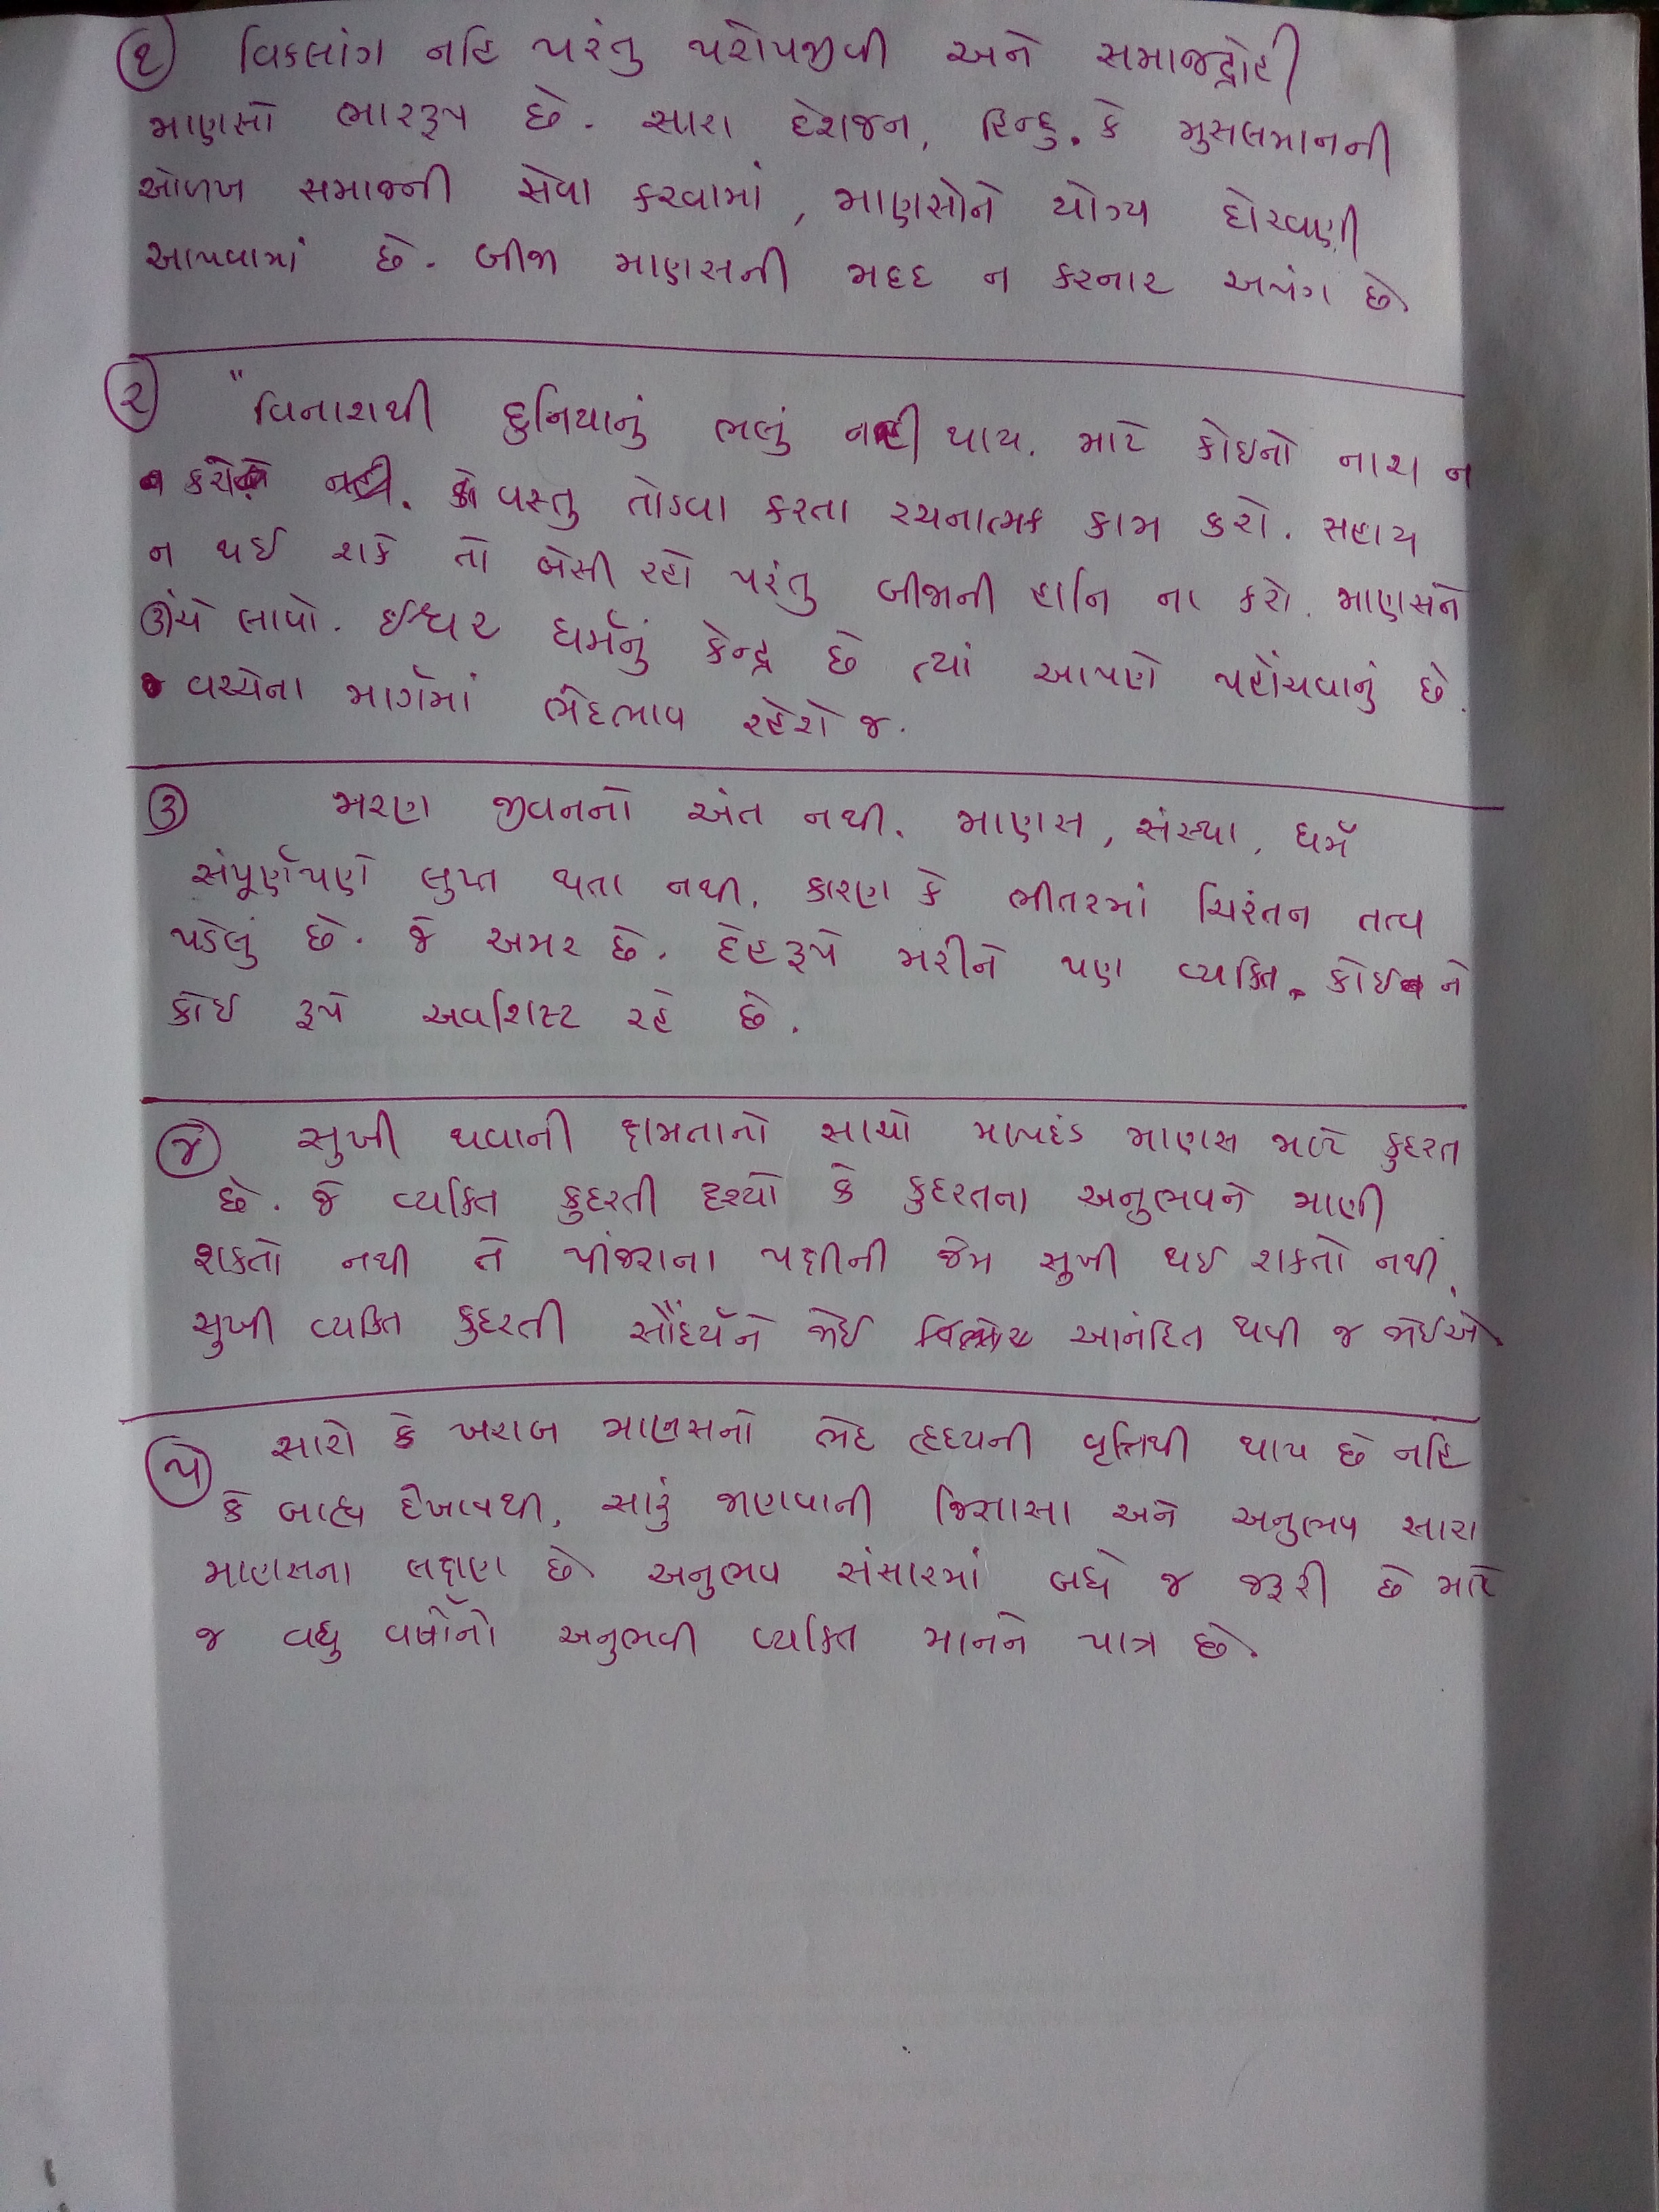 ૧ વિકલાંગ નહિ પરંતુ પરોપજીવી અને સમાજદ્રોહી
માણસો ભારરૂપ છે. સારા દેશજન, હિન્દુ. કે મુસલમાનની
ઓળખ સમાજની સેવા કરવામાં, માણસોને યોગ્ય દોરવણી
આપવામાં છે. બીજા માણસની મદદ ન કરનાર અપંગ છે
૨ "વિનાશથી દુનિયાનું ભલું નહી થાય. માટે કોઇનો નાશ ન
કરો વસ્તુ તોડવા કરતા રચનાત્મક કામ કરો. સહાય
ન થઈ શકે તો બેસી રહો પરંતુ બીજાની હાનિ ના કરો. માણસને
ઊંચે લાવો. ઈશ્વર ધર્મનું કેન્દ્ર છે ત્યાં આપણે પહોંચવાનું છે.
વચ્ચેના માર્ગમાં ભેદભાવ રહેશે જ.
૩ મરણ જીવનનો અંત નથી. માણસ, સંસ્થા, ધર્મ
સંપૂર્ણપણે લુપ્ત થતા નથી. કારણ કે ભીતરમાં ચિરંતન તત્વ
પડેલું છે. જે અમર છે. દેહરૂપે મરીને પણ વ્યક્તિ કોઇ ને
કોઇ રૂપે અવશિસ્ટ રહે છે.
૪ સુખી થવાની ક્ષમતાનો સાચો માપદંડ માણસ માટે કુદરત
છે. જે વ્યક્તિ કુદરતી દ્રશ્યો કે કુદરતના અનુભવને માણી
શકતો નથી તે પીંજરાના પક્ષીની જેમ સુખી થઈ શકતો નથી.
સુખી વ્યક્તિ કુદરતી સૌંદર્યને જોઈ આનંદિત થવી જ જોઈએ
૫ સારો કે ખરાબ માણસનો ભેદ હૃદયની વૃત્તિથી થાય છે નહિ
કે બાહ્ય દેખાવથી, સારું જાણવાની જિજ્ઞાસા અને અનુભવ સારા
માણસના લક્ષણ છે અનુભવ સંસારમાં બધે જ જરૂરી છે માટે
જ વધુ વર્ષોનો અનુભવી વ્યક્તિ માનને પાત્ર છે.